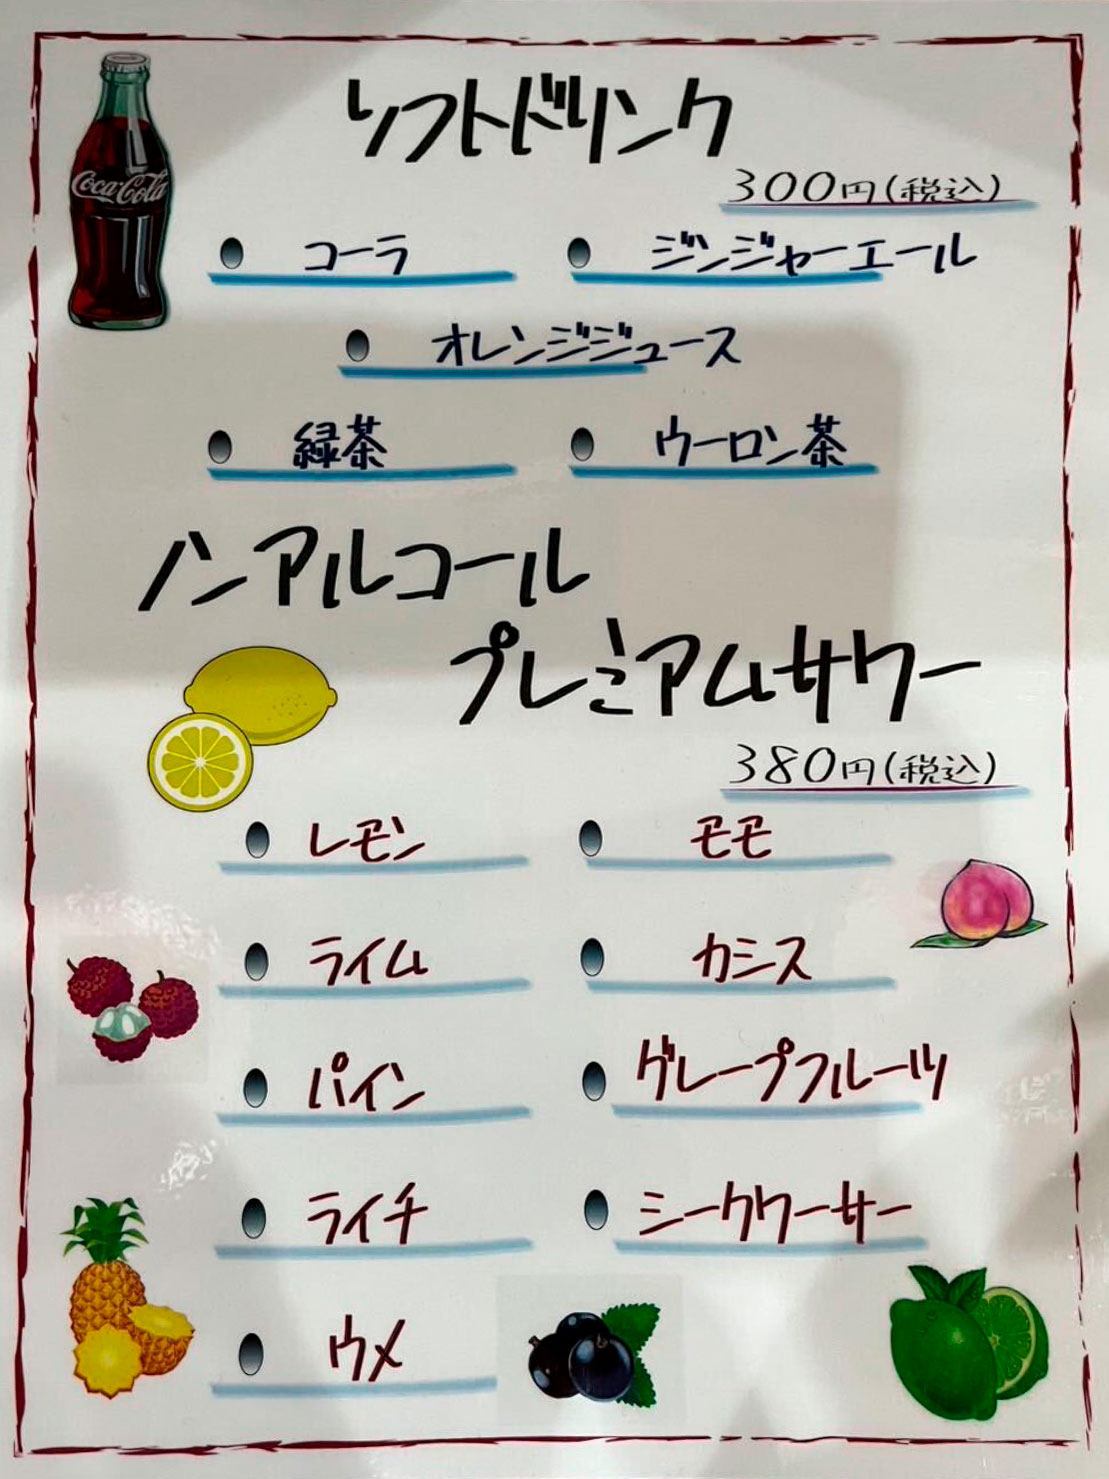 Coca-Cola
ソフトドリンク
300円(税込)
コーラ
ジンジャーエール
オレンジジュース
緑茶
ウーロン茶
ノンアルコール
プレミアムサワー
380円(税込)
レモン
モモ
ライム
カシス
パイン
グレープフルーツ
ライチ
シークワーサー
ウメ